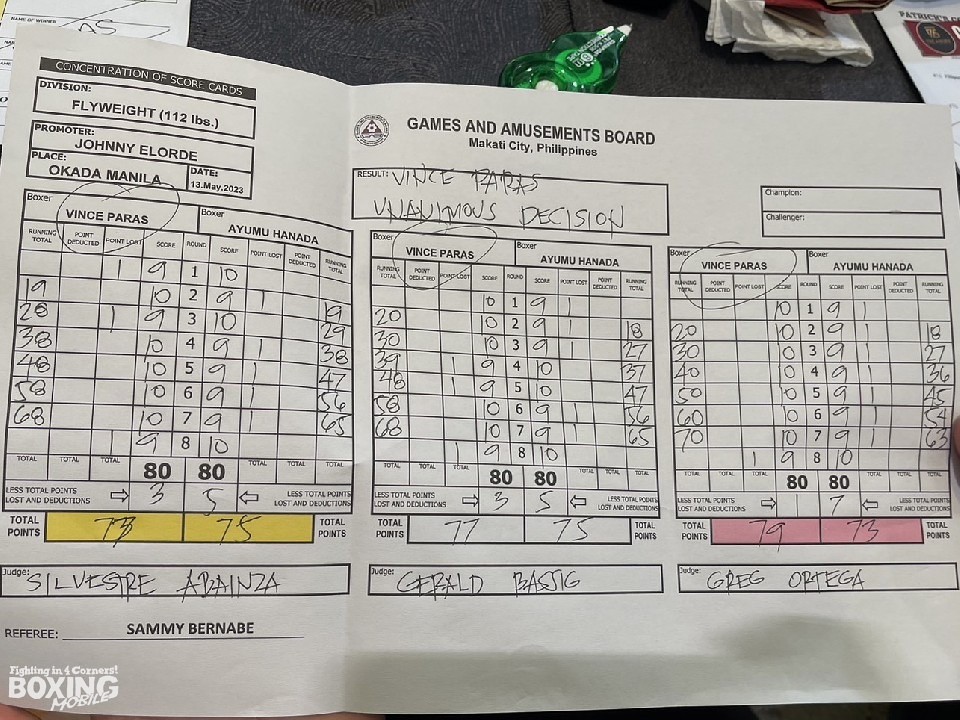 NAME OF WINNER
AS
PATRICK'S
CONCENTRATION OF SCORE CARDS
DIVISION:
FLYWEIGHT (112 lbs.)
PROMOTER:
JOHNNY ELORDE
PLACE:
OKADA MANILA
DATE:
13.May.2023
GAMES AND AMUSEMENTS BOARD
Makati City, Philippines
RESULT: VINCE PARAS
UNANIMOUS DECISION
Champion:
Challenger:
Boxer VINCE PARAS Boxer AYUMU HANADA
RUNNING TOTAL POINT DEDUCTED POINT LOST SCORE ROUND SCORE POINT LOST POINT DEDUCTED RUNNING TOTAL
1 9 1 10
19 10 2 9 1 19
28 1 9 3 10 29
38 10 4 9 1 38
48 10 5 9 1 47
58 10 6 9 1 56
68 10 7 9 1 65
1 9 8 10
TOTAL TOTAL TOTAL 80 80 TOTAL TOTAL TOTAL
LESS TOTAL POINTS LOST AND DEDUCTIONS 3 5 LESS TOTAL POINTS LOST AND DEDUCTIONS
TOTAL POINTS 75 TOTAL POINTS
Judge: SILVESTRE ABAINZA
Boxer VINCE PARAS Boxer AYUMU HANADA
RUNNING TOTAL POINT DEDUCTED POINT LOST SCORE ROUND SCORE POINT LOST POINT DEDUCTED RUNNING TOTAL
10 1 9 1
20 10 2 9 1 18
30 10 3 9 1 27
39 1 9 4 10 37
48 1 9 5 10 47
58 10 6 9 1 56
68 10 7 9 1 65
1 9 8 10
TOTAL TOTAL TOTAL 80 80 TOTAL TOTAL TOTAL
LESS TOTAL POINTS LOST AND DEDUCTIONS 3 5 LESS TOTAL POINTS LOST AND DEDUCTIONS
TOTAL POINTS 77 75 TOTAL POINTS
Judge: GERALD BASTIG
Boxer VINCE PARAS Boxer AYUMU HANADA
RUNNING TOTAL POINT DEDUCTED POINT LOST SCORE ROUND SCORE POINT LOST POINT DEDUCTED RUNNING TOTAL
10 1 9 1
20 10 2 9 1 18
30 10 3 9 1 27
40 10 4 9 1 36
50 10 5 9 1 45
60 10 6 9 1 54
70 10 7 9 1 63
1 9 8 10
TOTAL TOTAL TOTAL 80 80 TOTAL TOTAL TOTAL
LESS TOTAL POINTS LOST AND DEDUCTIONS 1 7 LESS TOTAL POINTS LOST AND DEDUCTIONS
TOTAL POINTS 79 73 TOTAL POINTS
Judge: GREG ORTEGA
REFEREE: SAMMY BERNABE
Fighting in 4 Corners!
BOXING
MOBILE